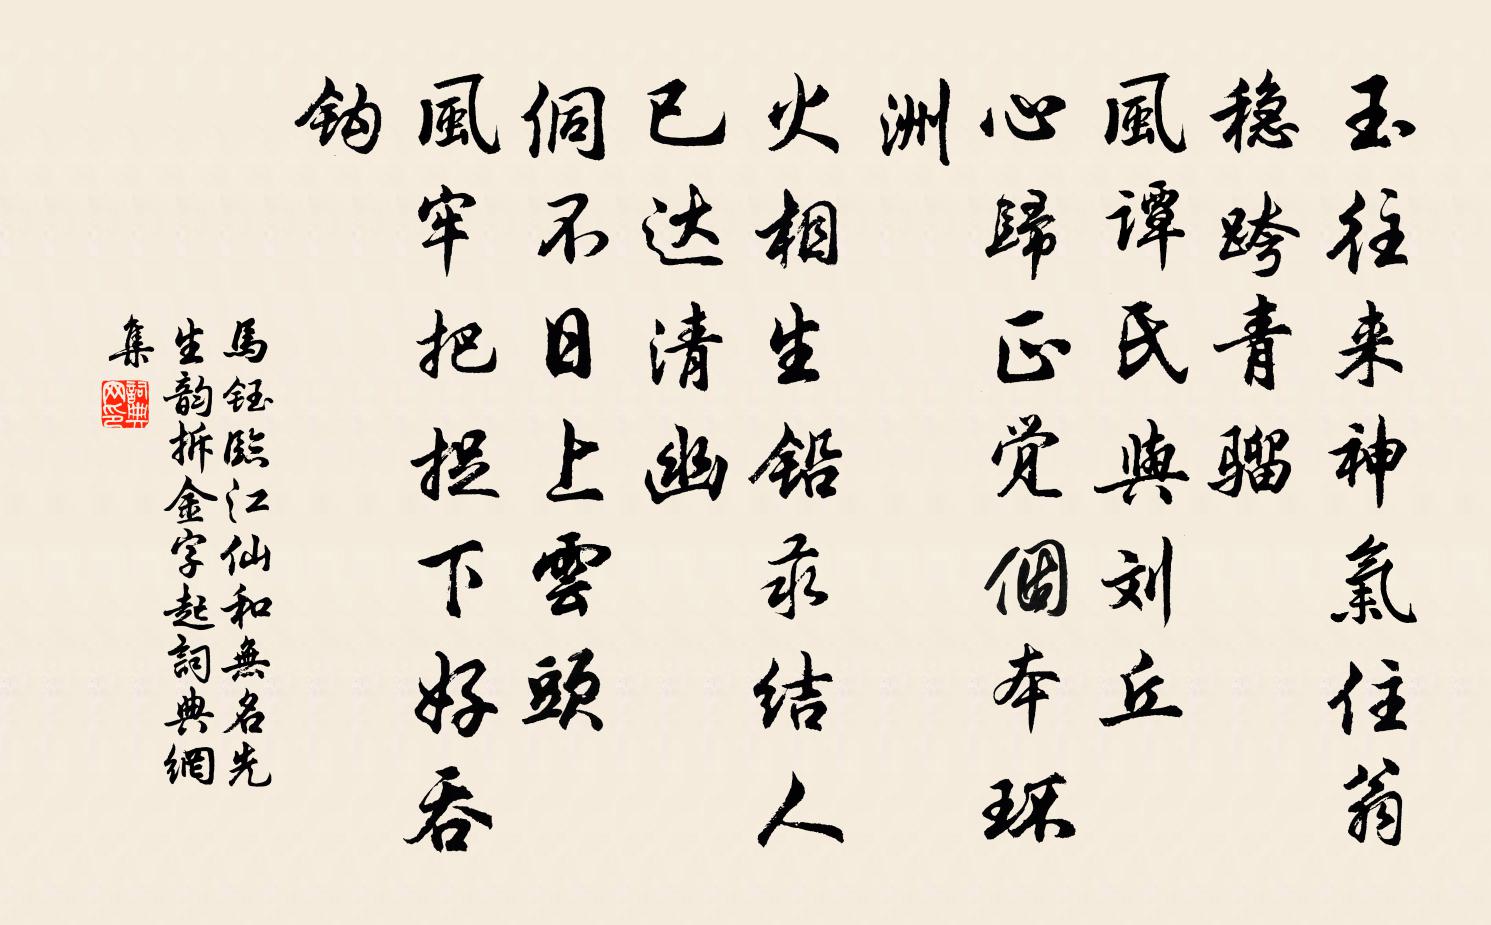 玉往来神氣住翁
稳跨青騮
風谭民與刘丘
心歸正觉個本环
洲
火相生铅汞结人
已达清幽
侗不日上雲頭
風牢把捉下好吞
钩
馬钰臨江仙和無名先
生韵拆金字起詞典網
集
詞典
网印